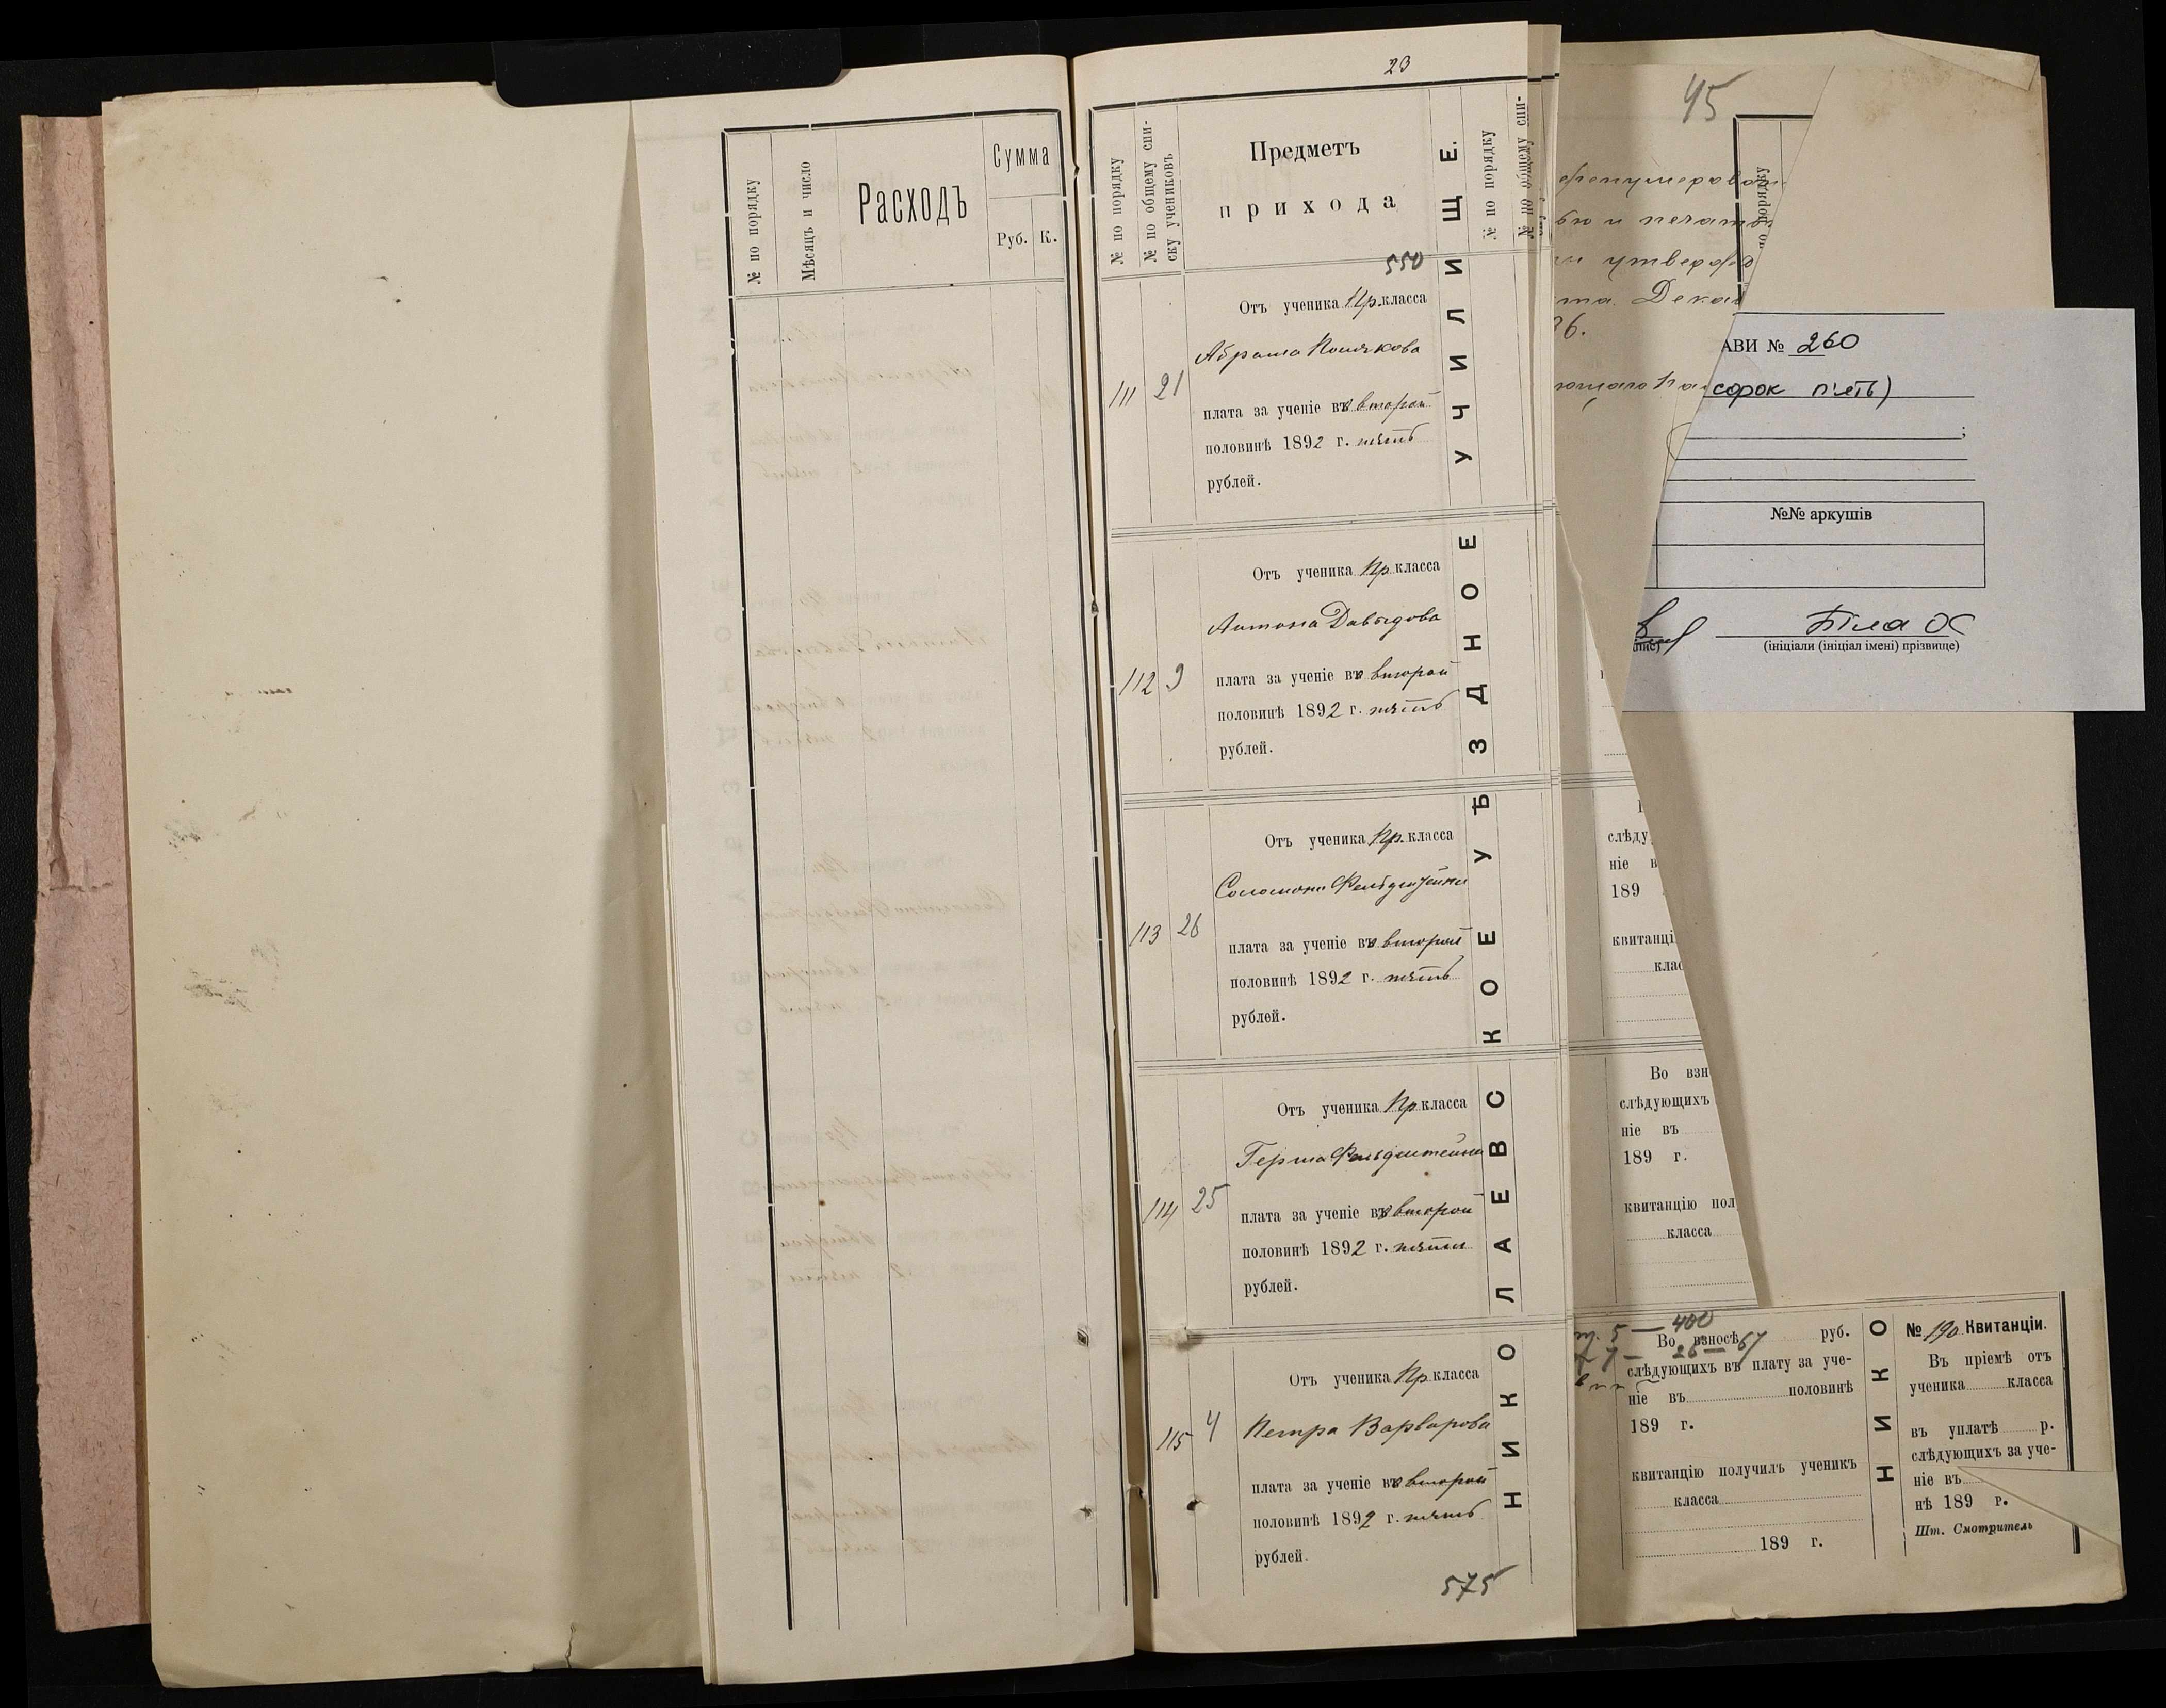 № по порядку
Мѣсяцъ и число
Расходъ
Сумма
Руб. К.
23
№ по порядку
№ по общему спи-
ску учениковъ
Предметъ
прихода
550
111 21
Отъ ученика Пр. класса
Абрама Полякова
плата за ученіе въ второй
половинѣ 1892 г. пять
рублей.
112 9
Отъ ученика Пр класса
Антона Давыдова
плата за ученіе въ второй
половинѣ 1892 г. пять
рублей.
113 26
Отъ ученика Пр. класса
Соломона Фельдштейна
плата за ученіе въ второй
половинѣ 1892 г. пять
рублей.
114 25
Отъ ученика Пр класса
Герша Фельдштейна
плата за ученіе въ второй
половинѣ 1892 г. пять
рублей.
115 4
Отъ ученика Пр класса
Петра Варварова
плата за ученіе въ второй
половинѣ 1892 г. пять
рублей.
575
НИКОЛАЕВСКОЕ УѢЗДНОЕ УЧИЛИЩЕ.
№ по порядку
№ по общему спи-
45
порядку
АВИ № 260
сорок п'ять)
;
№№ аркушів
Біла О
(ініціали (ініціал імені) прізвище)
слѣду
ніе в
189
квитанці
клас
Во взн
слѣдующихъ
ніе въ
189 г.
квитанцію пол
класса
5 — 400
67
Во взносѣ руб.
слѣдующихъ въ плату за уче-
ніе въ половинѣ
189 г.
квитанцію получилъ ученикъ
класса
189 г.
НИКО
№ 190 Квитанціи.
Въ пріемѣ отъ
ученика класса
въ уплатѣ р.
слѣдующихъ за уче-
ніе въ
нѣ 189 г.
Шт. Смотритель